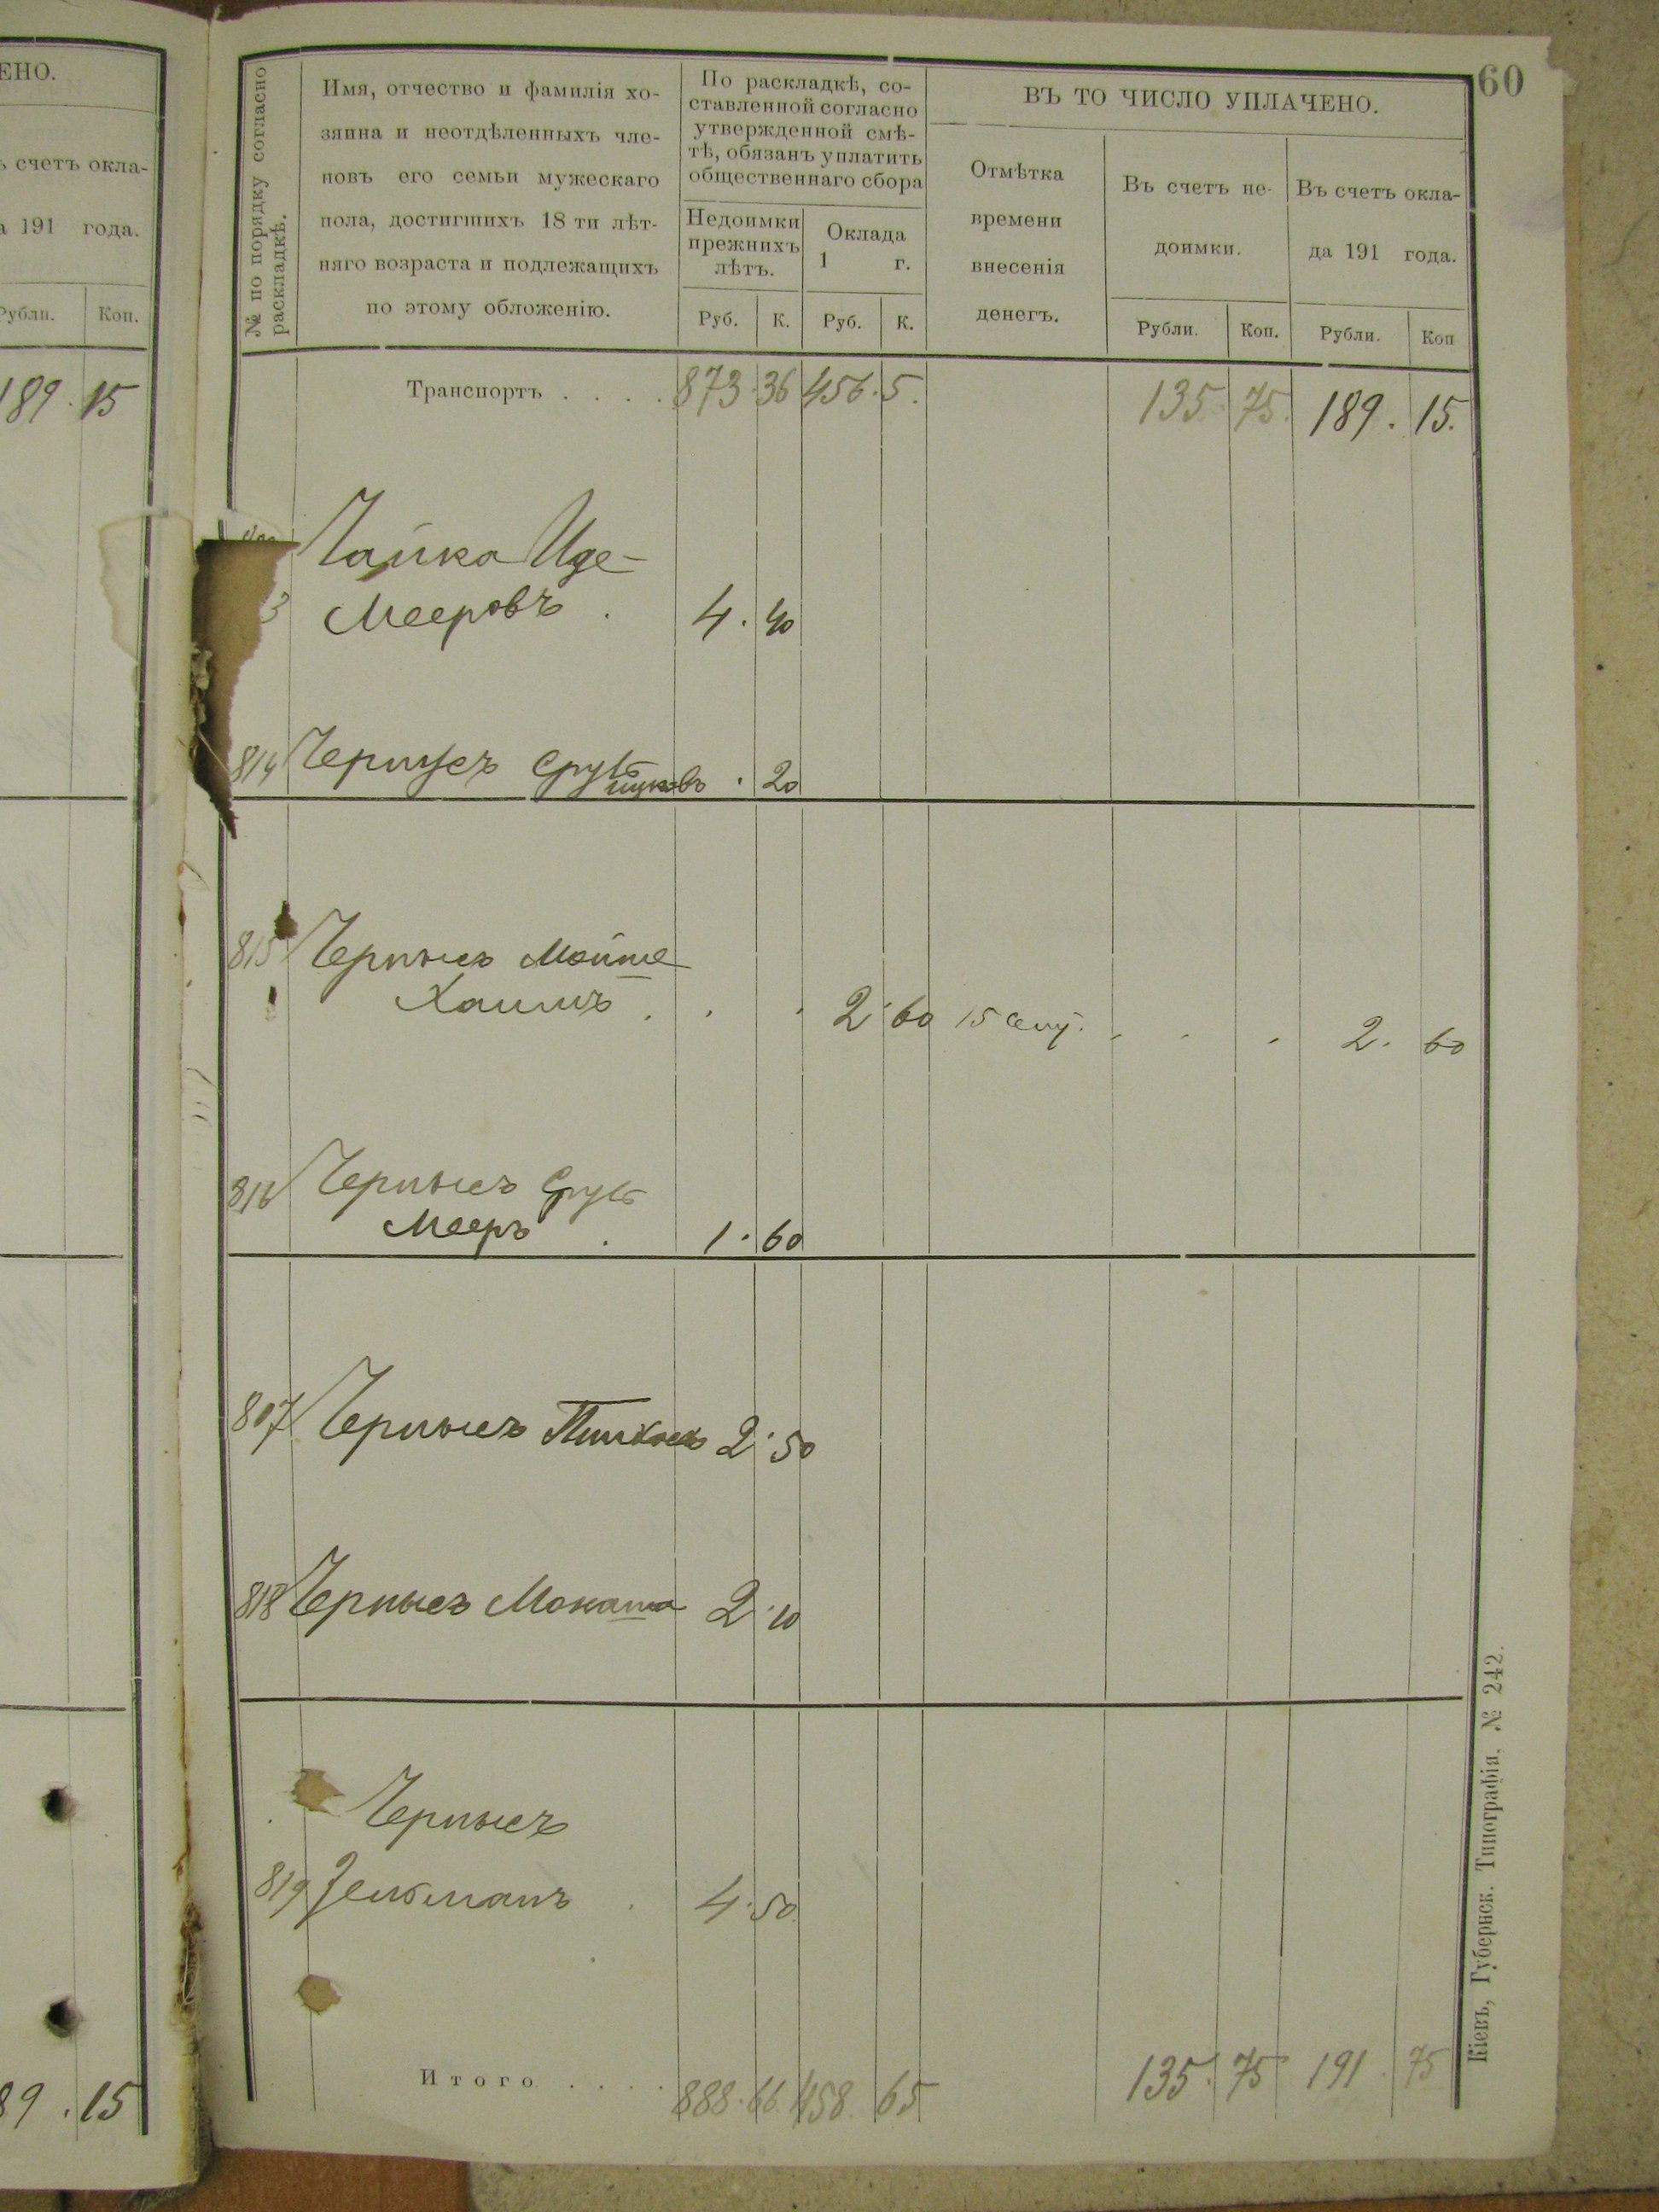 ЕНО.
ъ счетъ окла-
а 191 года.
Рубли. Коп.
189 . 15
89 . 15
60
№ по порядку согласно
раскладкѣ.
Имя, отчество и фамилія хо-
зяина и неотдѣленныхъ чле-
новъ его семьи мужескаго
пола, достигшихъ 18 ти лѣт-
няго возраста и подлежащихъ
по этому обложенію.
По раскладкѣ, со-
ставленной согласно
утвержденной смѣ-
тѣ, обязанъ уплатить
общественнаго сбора
Недоимки
прежнихъ
лѣтъ.
Оклада
1 г.
Руб. К. Руб. К.
Отмѣтка
времени
внесенія
денегъ.
ВЪ ТО ЧИСЛО УПЛАЧЕНО.
Въ счетъ не-
доимки.
Въ счетъ окла-
да 191 года.
Рубли. Коп. Рубли. Коп
Транспортъ . . . . 873 . 36 456 . 5 . 135 . 75 . 189 . 15.
Чайка Иде-
3 Мееровъ . 4 . 40
814 Чернысъ Сруль . 20
815 Чернысъ Мойше
Хаимъ . . . 2 . 60 15 Сент. . . . 2 . 60
816 Чернысъ Сруль
Мееръ . 1 . 60
817 Чернысъ Пинхасъ 2 . 50
818 Чернысъ Моката 2 . 10
Чернысъ
819 Зельманъ . 4 . 50
Итого . . . . 888 . 66 458 65 135 . 75 191 . 75
Кіевъ, Губернск. Типографія, № 242.